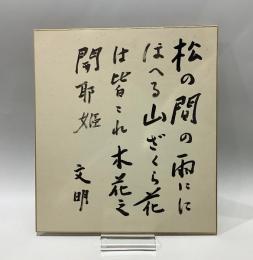 松の間の雨にに
ほへる山ざくら花
は皆これ木花之
開耶姫
文明